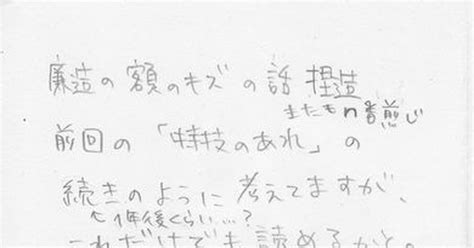 廉造の額のキズの話 捏造
またもn番煎じ
前回の「特技のあれ」の
続きのように考えてますが、
↑1年後くらい…?
これだけでも読めるかと。